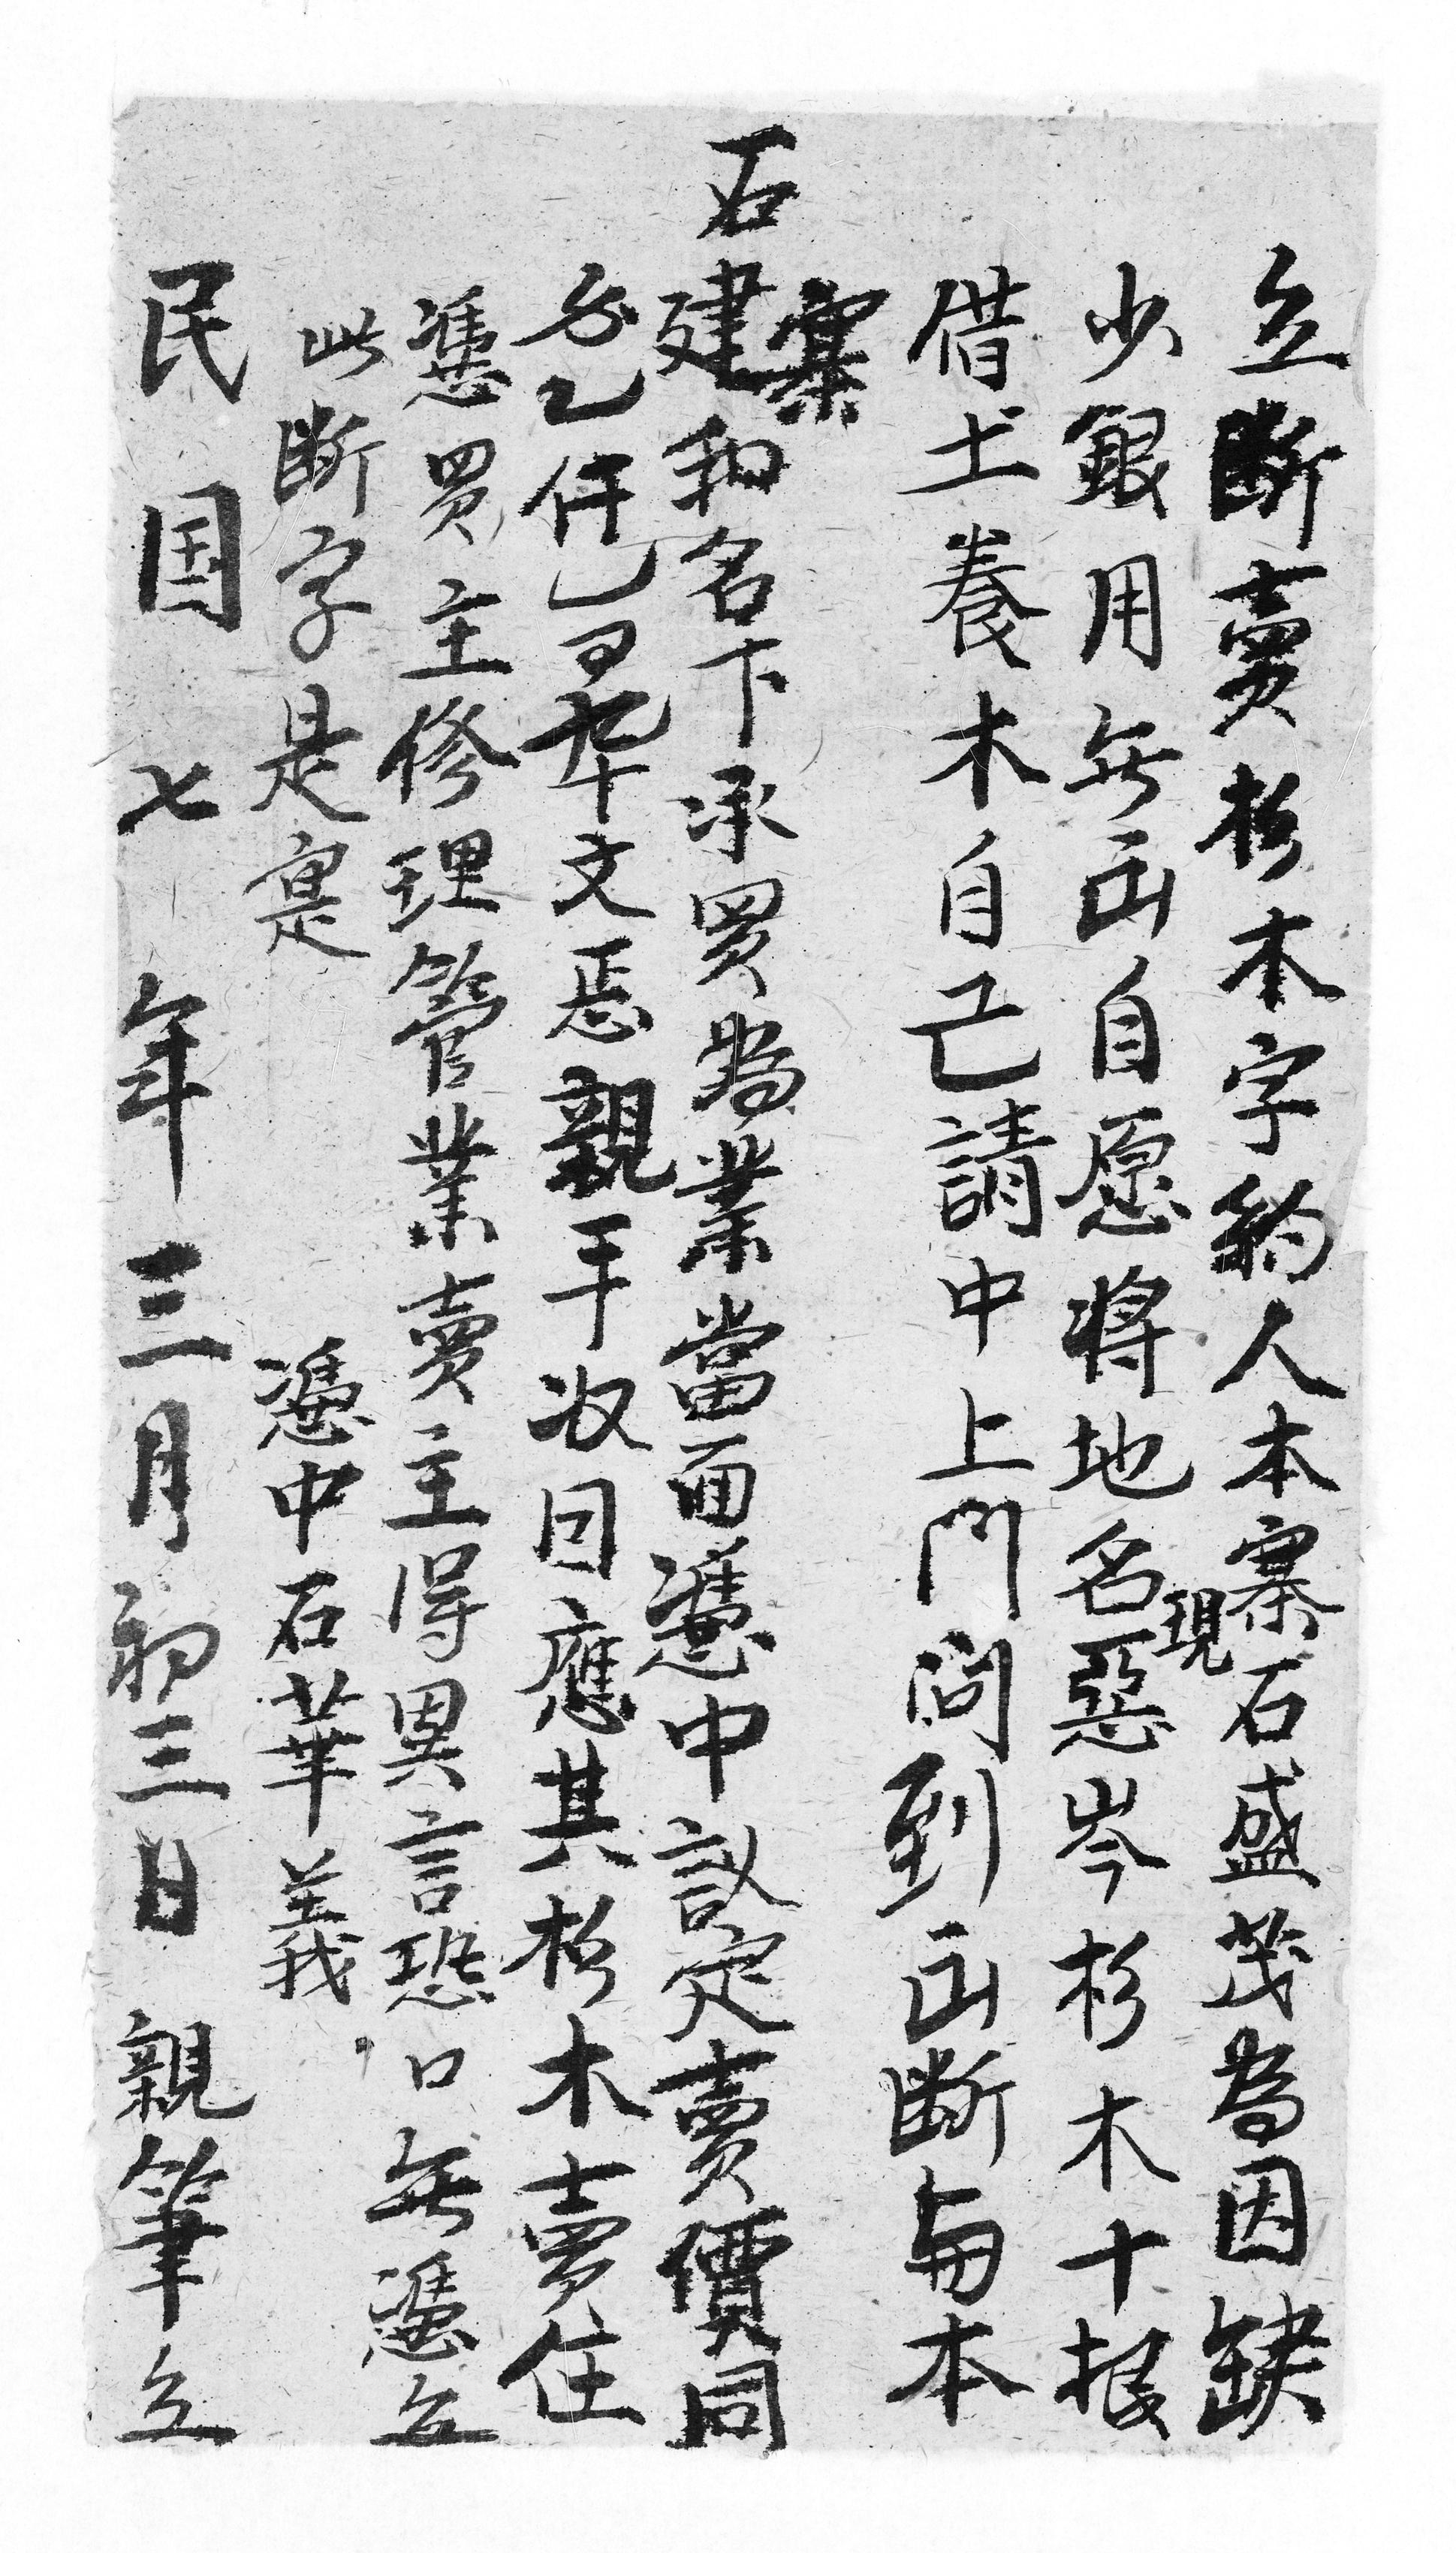 立斷賣杉木字約人本寨石盛茂為因缺
少銀用無出自愿將地名現惡岑杉木十根
借土養木自己請中上門问到出断与本
寨
石建和名下承買為業當面憑中議定賣價同
式乙仟乙百文恶親手收囯應其杉木賣住
憑買主修理管業賣主得異言恐口無憑立
此断字是寔
憑中石華義
民国七年三月初三日親筆立